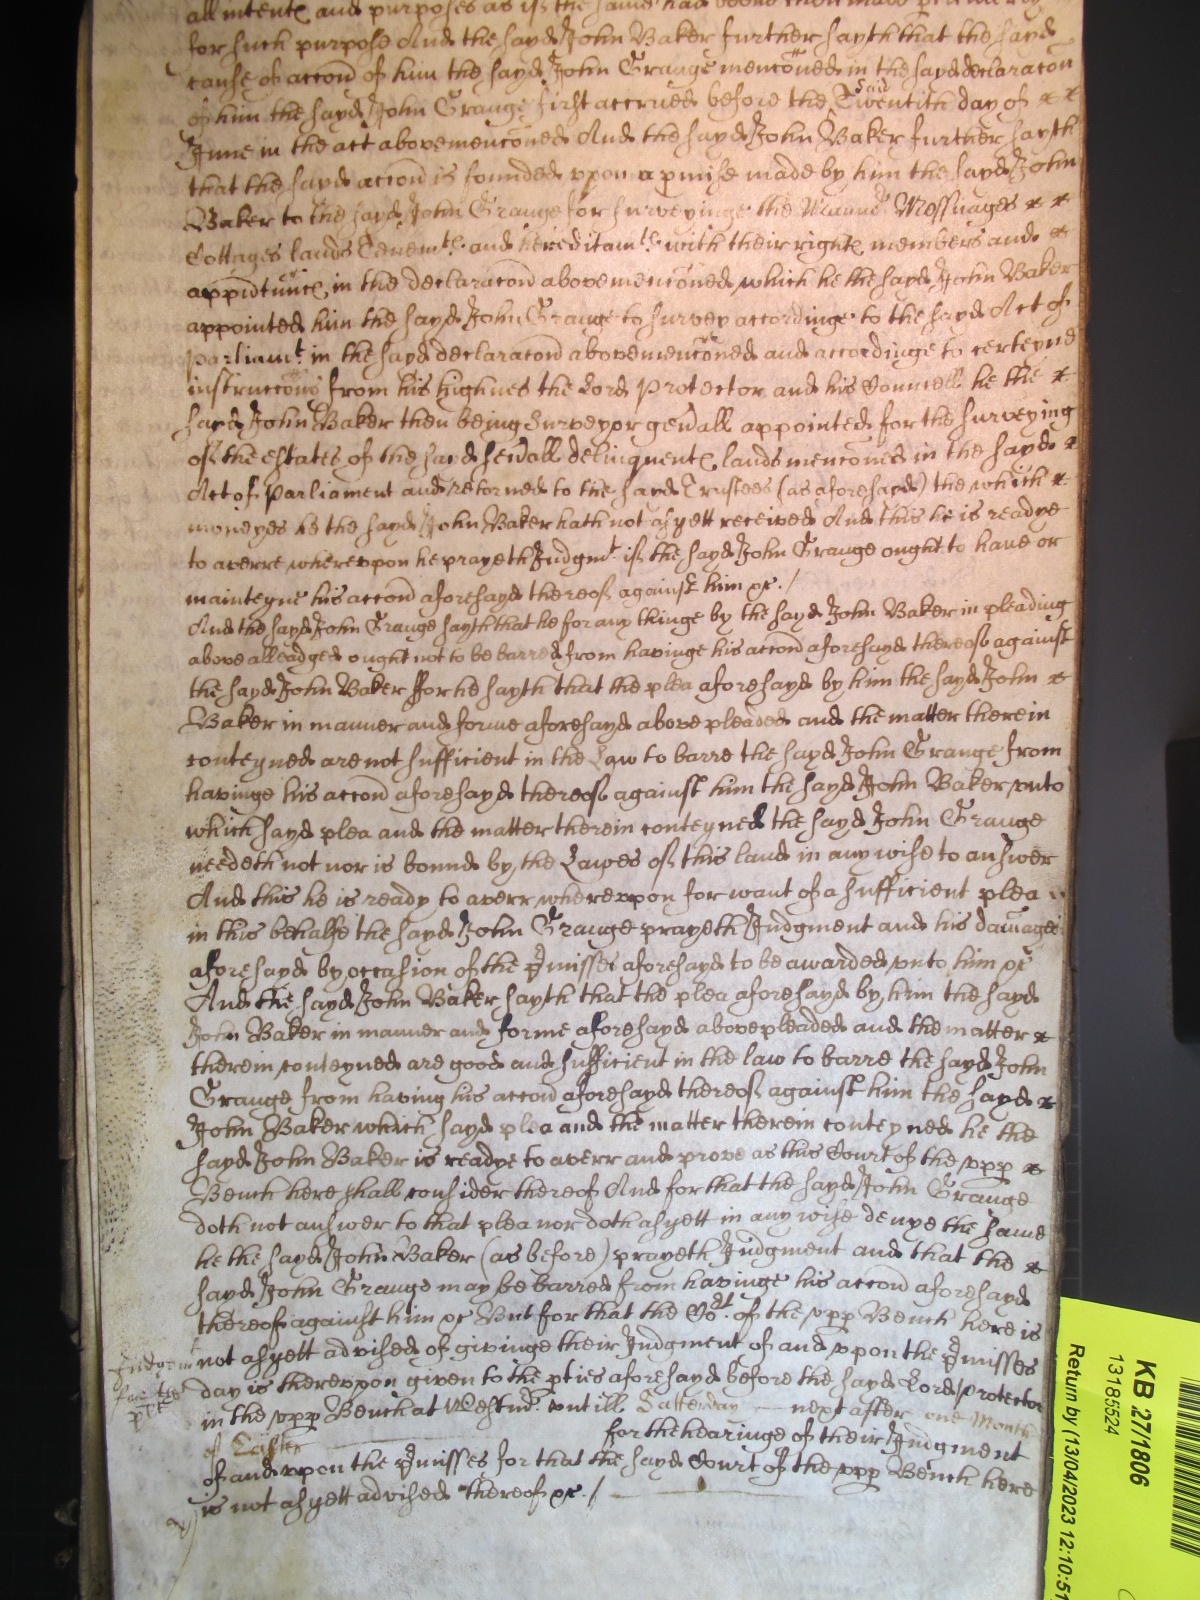 all intents and purposes as if the same had been
for such purpose And the sayd John Baker further sayth that the sayd
cause of accon̄ of him the sayd John Grange menconed in the sayd declaracon
of him the sayd John Grange first accrued before the said Twentith day of
June in the act abovemenconed And the sayd John Baker further sayth
that the sayd accon̄ is founded vpon a pmise made by him the sayd John
Baker to the sayd John Grange for surveyinge the Mannor Messuages
Cottages lands Tenemts. and hereditamts. with their rights members and
appurtunces in the declaracon abovemenconed which he the sayd John Baker
appointed him the sayd John Grange to survey accordinge to the sayd Act of
Parliamt. in the sayd declaracon abovemenconed and accordinge to certeyne
instruccons from his highnes the Lord Protector and his Councell he the
sayd John Baker then being Surveyor genall appointed for the surveying
of the estates of the sayd sevall delinquents lands menconed in the sayd
Act of Parliament and retorned to the sayd Trustees (as aforesayd) the which
moneyes he the sayd John Baker hath not as yett received And this he is readye
to averre wherevpon he prayeth Judgmt. if the sayd John Grange ought to have or
mainteyne his accon̄ aforesayd thereof against him &c. /
And the sayd John Grange sayth that he for any thinge by the sayd John Baker in pleading
above alleadged ought not to be barred from havinge his accon̄ aforesayd thereof against
the sayd John Baker ffor he sayth that the plea aforesayd by him the sayd John
Baker in manner and forme aforesayd above pleaded and the matter therein
conteyned are not sufficient in the Law to barre the sayd John Grange from
havinge his accon̄ aforesayd thereof against him the sayd John Baker vnto
which sayd plea and the matter therein conteyned the sayd John Grange
needeth not nor is bound by the Lawes of this land in any wise to answer
And this he is ready to averr wherevpon for want of a sufficient plea
in this behalfe the sayd John Grange prayeth Judgment and his damages
aforesayd by occasion of the pmisses aforesayd to be awarded vnto him &c
And the sayd John Baker sayth that the plea aforesayd by him the sayd
John Baker in manner and forme aforesayd above pleaded and the matter
therein conteyned are good and sufficient in the law to barre the sayd John
Grange from having his accon̄ aforesayd thereof against him the sayd
John Baker which sayd plea and the matter therein conteyned he the
sayd John Baker is readye to averr and prove as this Court of the vpp
Bench here shall consider thereof And for that the sayd John Grange
doth not answer to that plea nor doth as yett in any wise denye the same
he the sayd John Baker (as before) prayeth Judgment and that the
sayd John Grange may be barred from havinge his accon̄ aforesayd
thereof against him &c But for that the Cort. of the vpp Bench here is
not as yett advised of givinge their Judgment of and vpon the pmisses
day is therevpon given to the pties aforesayd before the sayd Lord Protector
in the vpp Bench at Westmr. vntill Satterday next after one Month
of Easter for the hearinge of their Judgment
of and vpon the pmisses for that the sayd Court of the vpp Bench here
is not as yett advised thereof &c. /
KB 27/1806
13185524
Return by (13/04/2023 12:10:51